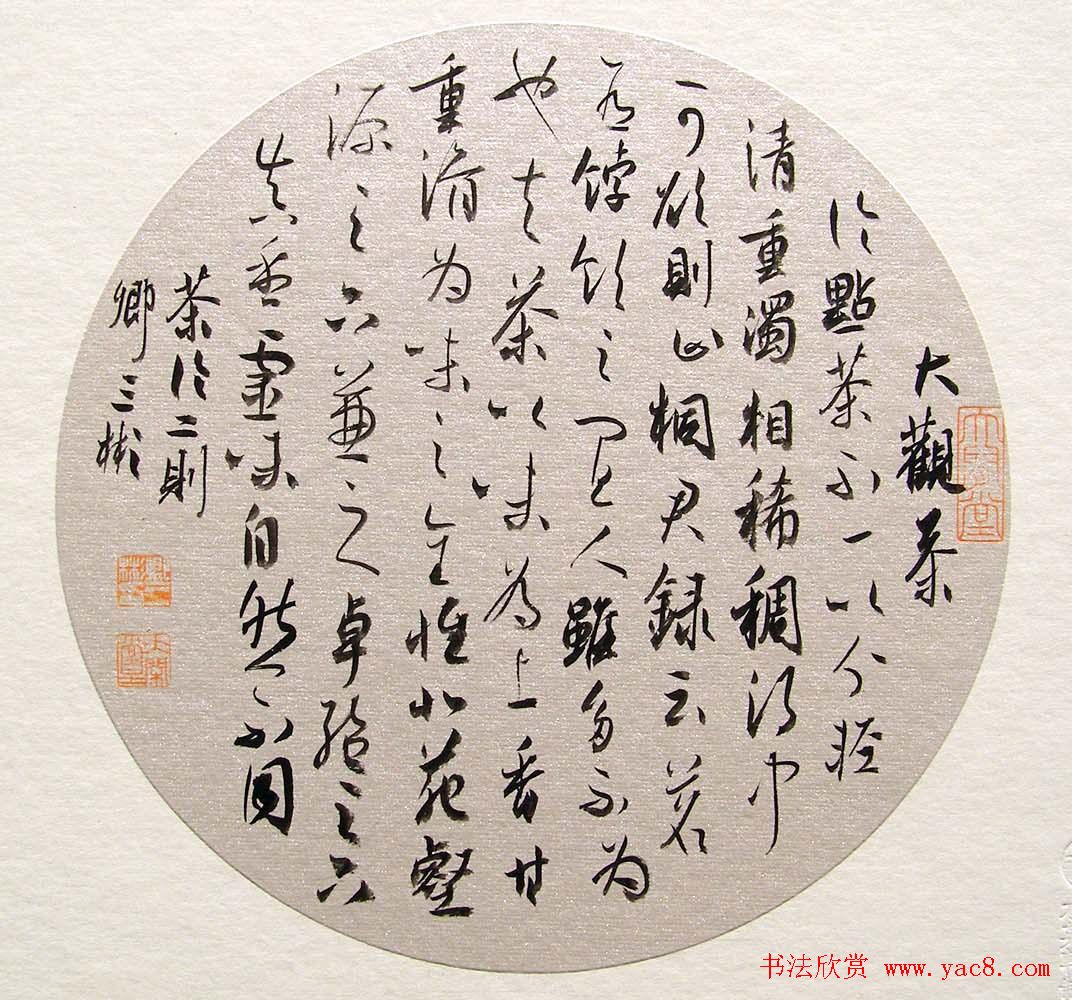 大觀茶
論點茶不一以分輕
清重濁相稀稠得中
可欲則止桐君録云茗
有餑飲之宜人雖多不为
也夫茶以味為上香甘
重滑为味之全惟北苑壑
源之品兼之卓絶之品
真香靈味自然不同
茶論二則
卿三彬
书法欣赏 www.yac8.com